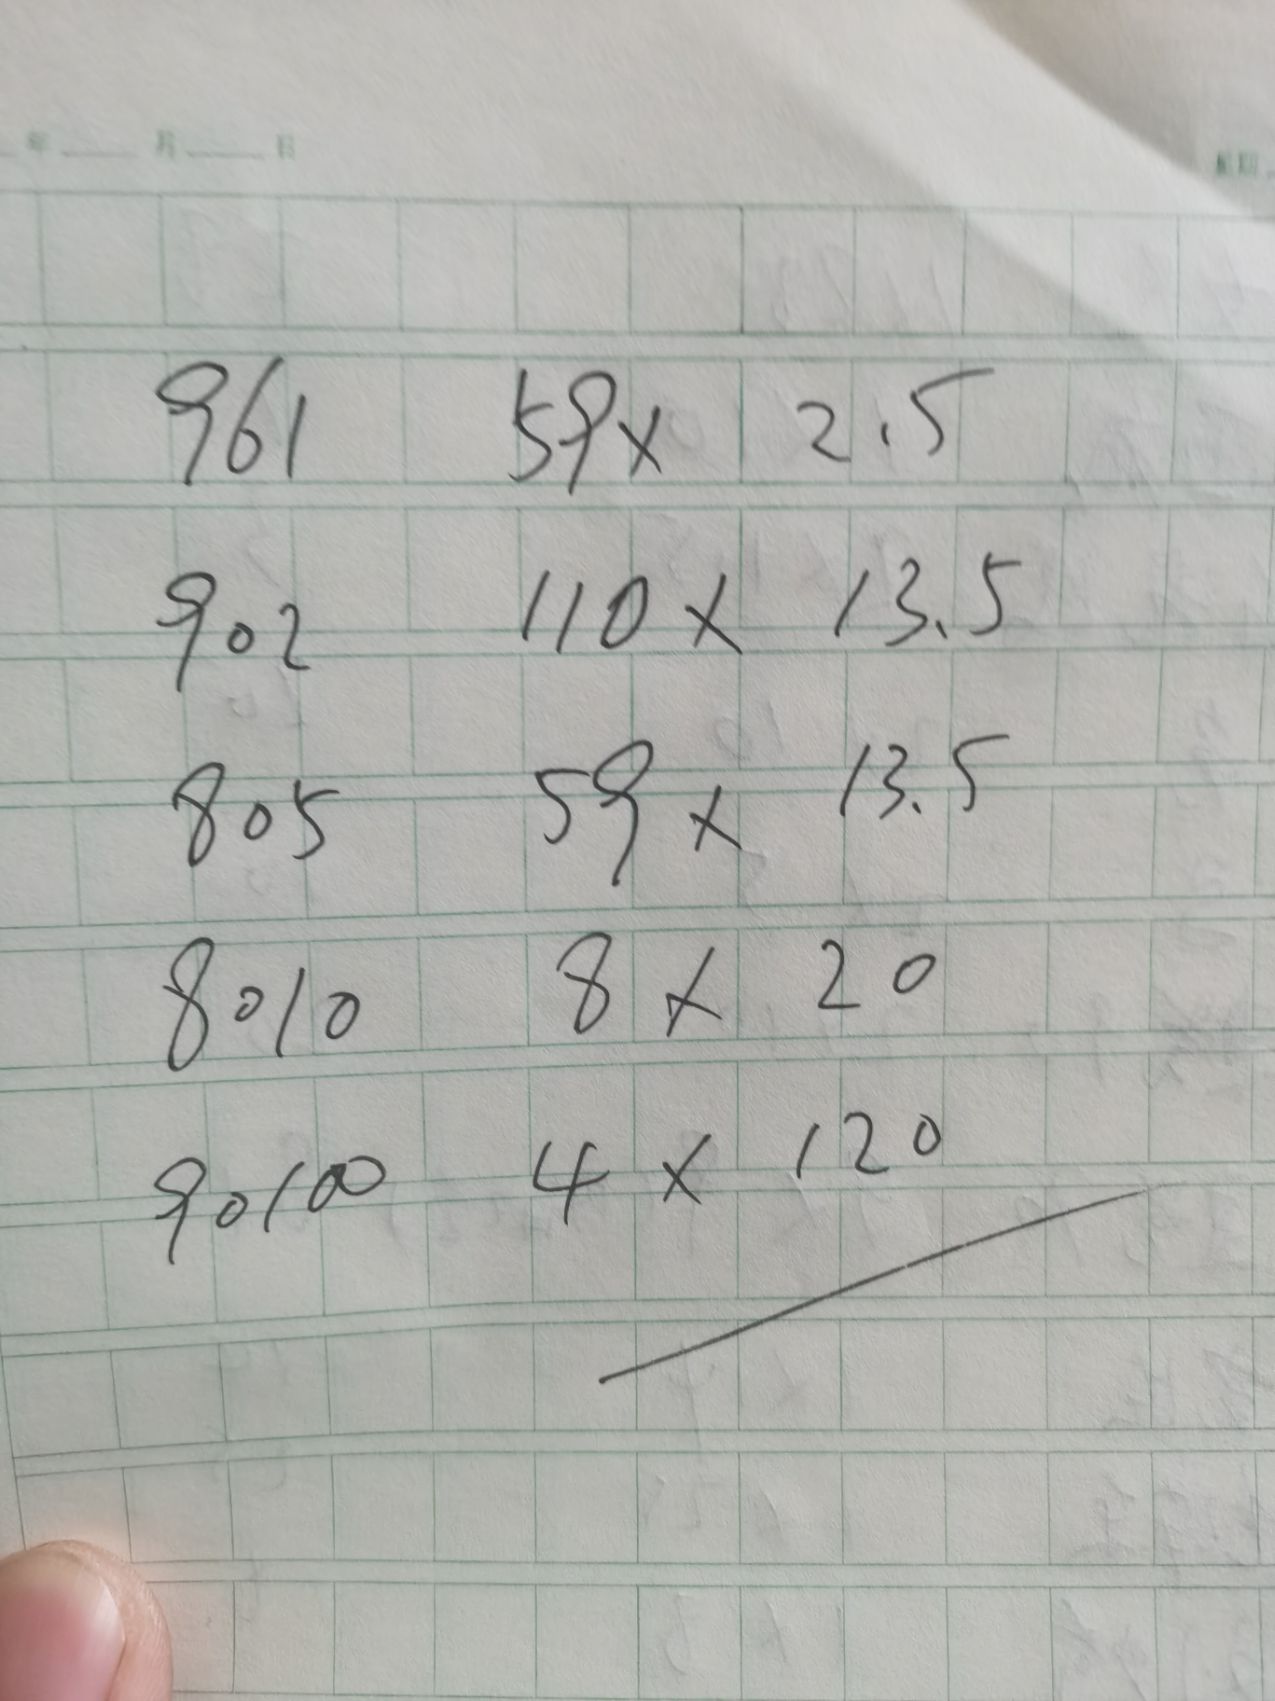 年 月 日
961 59x 2.5
902 110x 13.5
805 59x 13.5
8010 8x 20
90100 4x 120